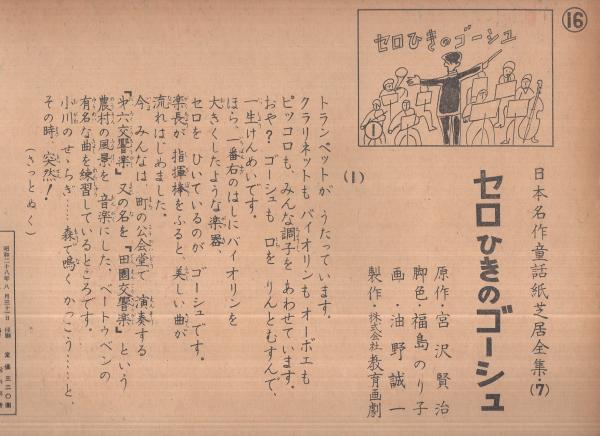 ⑯
セロひきのゴーシュ
日本名作童話紙芝居全集・(7)
セロひきのゴーシュ
原作・宮沢賢治
脚色・福島のり子
画・油野誠一
製作・株式会社教育画劇
(1)
トランペットが うたっています。
クラリネットも バイオリンも オーボエも
ピッコロも、みんな調子を あわせています。
おや？ゴーシュも 口を りんとむすんで、
一生けんめいです。
ほら、一番右のはしにバイオリンを
大きくしたような楽器、
セロを ひいているのが ゴーシュです。
楽長が 指揮棒をふると、美しい曲が
流れはじめました。
今、みんなは、町の公会堂で 演奏する
『第六交響楽』又の名を『田園交響楽』という
農村の風景を 音楽にした、ベートウベンの
有名な曲を練習しているところです。
小川のせゝらぎ……森で鳴くかっこう……と、
その時、突然！
(さっとぬく)
昭和二十八年八月三十一日 定価 三二〇円